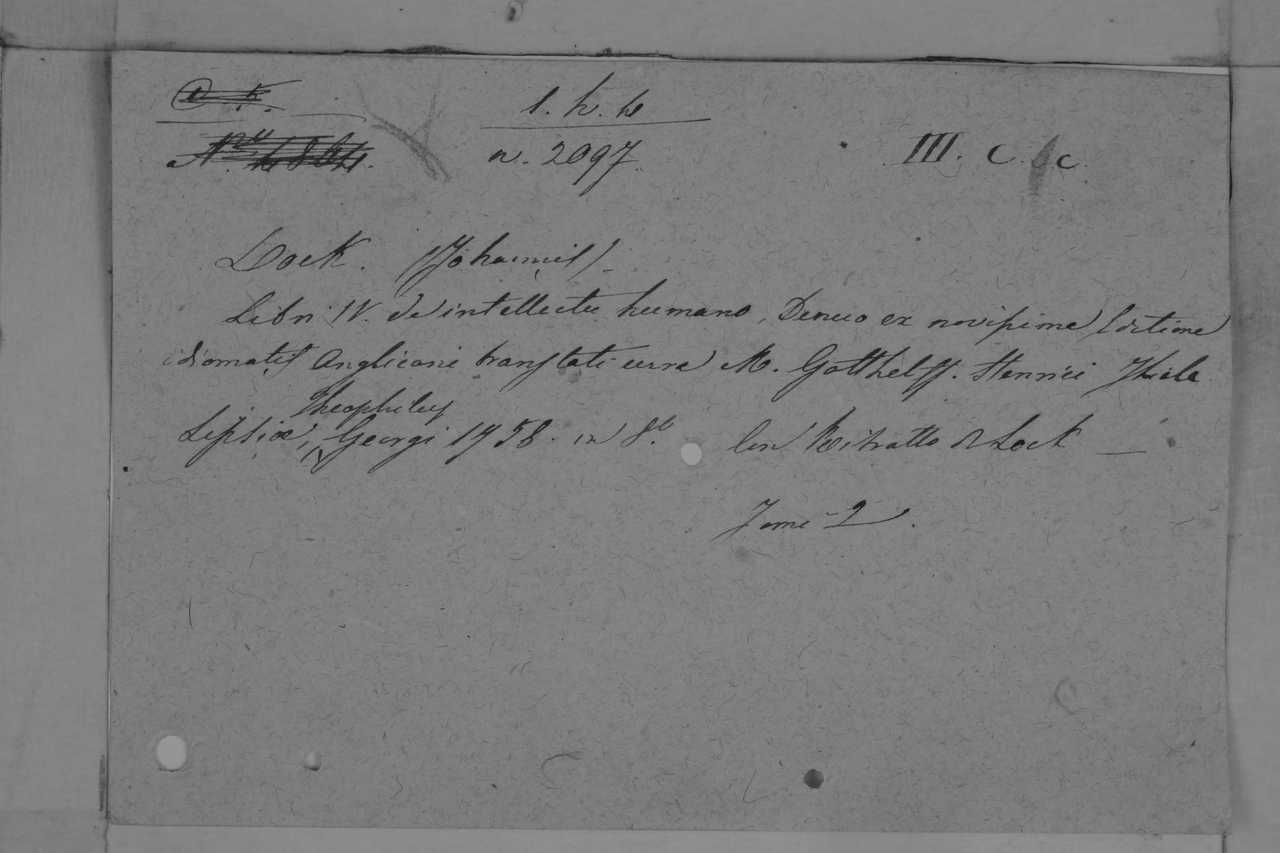 1. h. 4
n. 2097.
III. c. c.
Lock. (Johannis)
Libri IV. de intellectu humano, Denuo ex novissime Editione
idiomatis Anglicani translati cura M. Gotthelff. Henrici Thiele
Theophilus
Lipsiæ, Georgi 1758. in 8.º Con Ritratto di Lock —
Tomi 2.